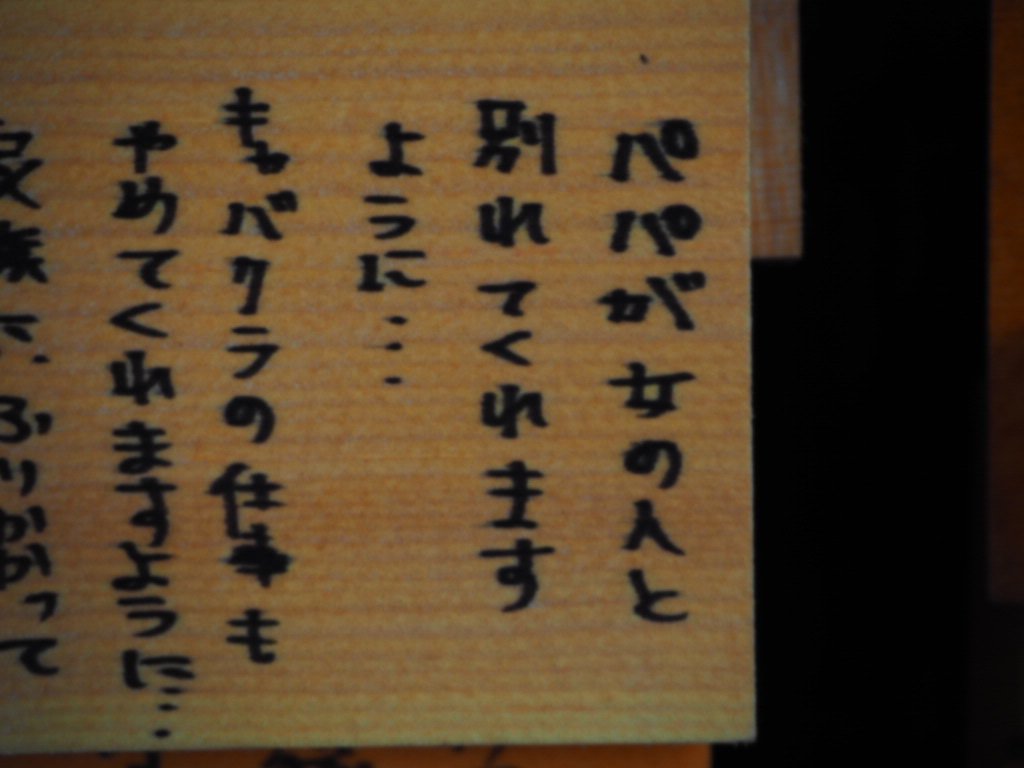 パパが女の人と
別れてくれます
ように…
きゃバクラの仕事も
やめてくれますように…
家族に、ふりかかって